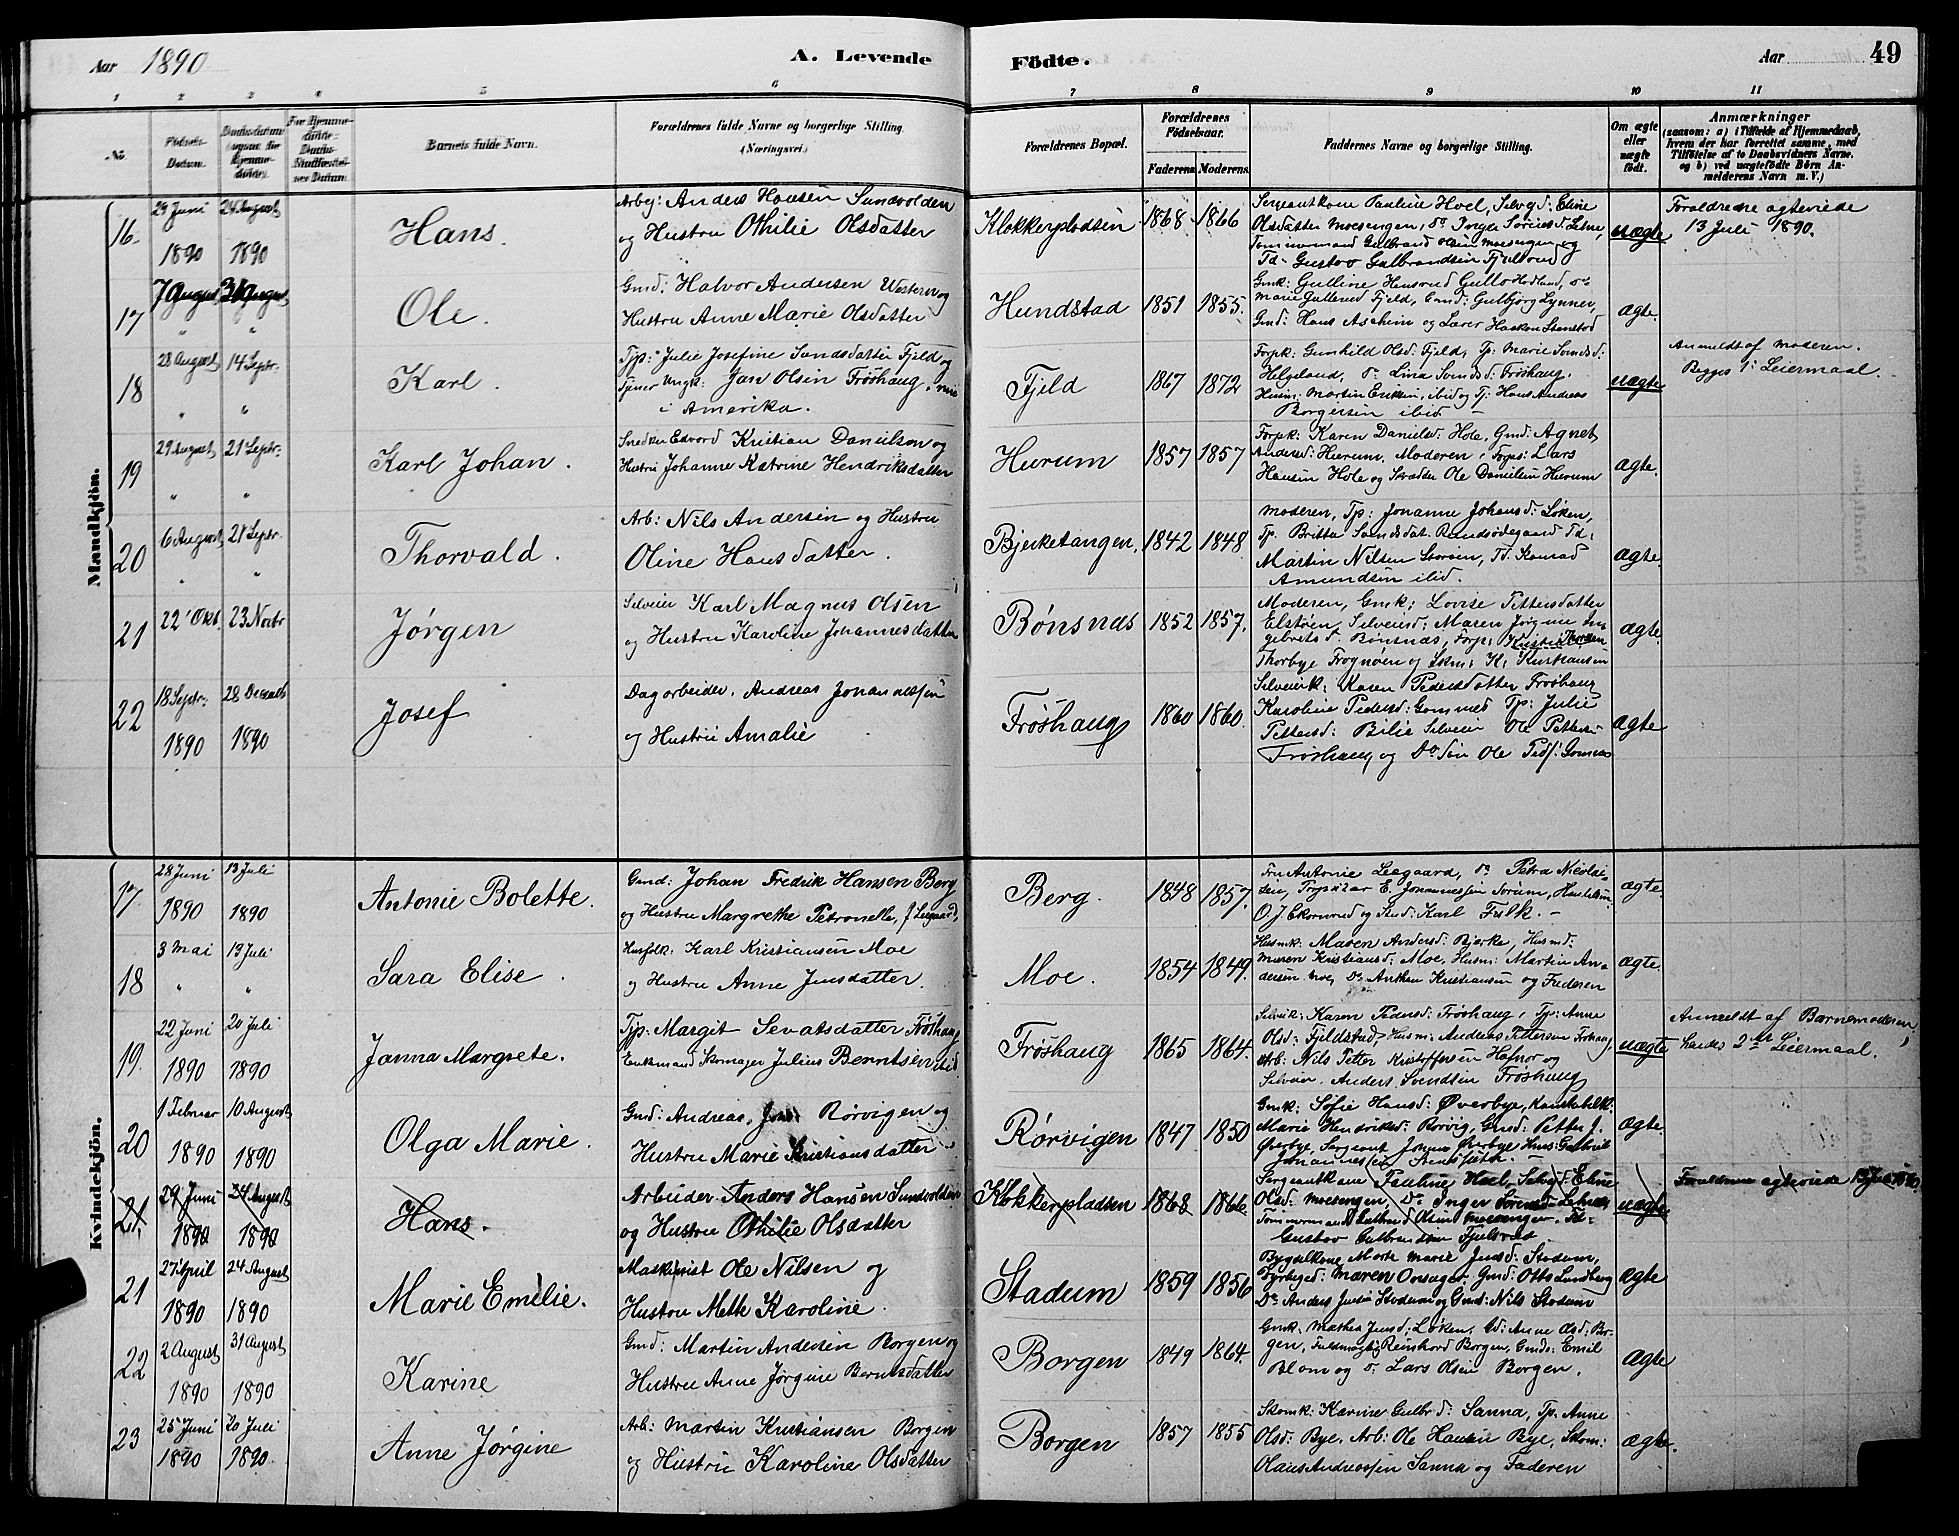 Aar 1890 A. Levende Födte. Aar 49
1 2 3 4 5 6 7 8 9 10 11
No. Födsels-Datum. Barnets fulde Navn. Forældrenes fulde Navne og borgerlige Stilling. (Næringsvei.) Forældrenes Bopæl. Forældrenes Födselsaar. Faderens Moderens Faddernes Navne og borgerlige Stilling. Om ægte eller uægte födt. Anmærkninger
(saasom: a) i Tilfælde af Hjemmedaab,
hvem der har forrettet samme, med
Tilföielse af to Daabsvidners Navne,
og b) ved uægtefödte Börn An-
melderens Navn m. V.)
Mandkjön.
16 29 Juni 1890 24 August 1890
Hans.
Arbej: Anders Hansen Sundvolden
og Hustru Othilie Olsdatter
Klokkerpladsen 1868 1866
Sergeantkone Pauline Hoel, Selvgd: Eline
Olsdatter Moesengen, do Inger Sørensd. Lehne,
Tømmermand Gulbrand Olsen Moesengen og
Td. Gustav Gulbrandsen Fjulsrud
uægte
Forældrene ægteviede
13 Juli 1890.
17 7 August " 31 August "
Ole.
Gmd: Halvor Andersen Western og
Hustru Anne Marie Olsdatter
Hundstad 1851 1855.
Marie Gulbrand Fjeld, Gmd: Gulbjørg Lynner,
Gmd: Hans Aschim og Lærer Haakon Stenstad
ægte.
18 28 August " 14 Septr. "
Karl.
Tjp: Julie Josefine Svendsdatter Fjeld og
Tjener Ungk: Jan Olsen Frøshaug, nu
i Amerika.
Fjeld 1867 1872
Forpk: Gunhild Olsd. Fjeld, Tp: Marie Svendsd:
Helgeland, do Lina Svendsd: Frøshaug,
Husm: Martin Eriksen, ibid og Tj: Hans Andreas
Borgersen ibid –
uægte
Anmeldt af Moderen.
Begges 1ste Leiermaal.
19 29 August " 21 Septr. "
Karl Johan.
Snedker Edvard Kristian Danielsen og
Hustru Johanne Katrine Hendriksdatter
Hurum 1857 1857
Forpk: Karen Danielsd: Hole, Gmd: Agnet
Andersd: Hurum, Moderen, Forp: Lars
Hansen Hole og Skrædder Ole Danielsen Hurum
ægte.
20 6 August " 21 Septr. "
Thorvald.
Arb: Nils Andersen og Hustru
Oline Hansdatter.
Bjerketangen, 1842 1848
Moderen, Tp: Johanne Johansd: Løken,
Tp. Britta Svendsdat. Rundsødegaard Td:
Martin Nilsen Storøen, Td. Konrad
Amundsen ibid.
ægte.
21 22 Okt. 23 Novbr
Jørgen
Selveier Karl Magnus Olsen
og Hustru Karoline Johannesdatter
Bønsnæs 1852 1857.
Moderen, Gmk: Lovise Pettersdatter
Elstøen, Selveierd: Maren Jørgine In-
gebretsd. Bønsnæs, Forp: Kristian Thorsen
Thorbye Frognøen og Skm: H: Kristiansen
ægte.
22 18 Septr. 1890 28 Decemb 1890
Josef
Dagarbeider. Andreas Johannessen
og Hustru Amalie
Frøshaug 1860 1860.
Selveierk: Karen Pedersdatter Frøshaug
Karoline Pedersd: Gomnæs Tp: Julie
Pettersd: Bilie Selveier Ole Petters:
Frøshaug og Do Søn Ole Peds: Gomnæs
ægte
Kvindekjön.
17. 28 Juni 1890 13 Juli 1890
Antonie Bolette.
Gmd: Johan Fredrik Hansen Berg
og Hustru Margrethe Petronelle, f. Leegaard,
Berg. 1848 1857.
Fru Antonie Leegaard, do Petra Nicolai-
sen, E. Johannessen Sorum,
O. J. Ekornrud og Stud: Karl Falk. –
ægte.
18 3 Mai " 13 Juli "
Sara Elise.
Husfolk: Karl Kristiansen Moe
og Hustru Anne Jensdatter.
Moe. 1854 1849.
Husmk: Maren Andersd: Bjerke, Husmd:
Maren Kristiansd: Moe, Husm: Martin An-
dersen Moe, Do Anthon Kristiansen og Faderen
ægte.
19. 22 Juni 1890 20 Juli 1890
Janna Margrete.
Tjp: Margit Sevatsdatter Frøshaug
Enkemand Skomager Julius Berntsen ibid.
Frøshaug 1865 1864.
Selveierk: Karen Pedersd: Frøshaug, Tjp: Anne
Olsd: Fjeldstad, Husm: Andreas Pettersen Frøshaug,
Arb: Nils Petter Kristoffersen Hafnor og
Selveier. Anders Svendsen Frøshaug
uægte
Anmeldt af Barnemoderen,
hendes 2det Leiermaal.
20 1 Februar 1890 10 August 1890
Olga Marie.
Gmd: Andreas Rørvigen og
Hustru Marie Kristiansdatter
Rørvigen 1847 1850
Gmk: Sofie Hansd: Øverbye,
Marie Hendriksd: Rørvig, Gmd: Petter J.
Øverbye, Sergeant Johan Øverbye Hans Gulbrik
Johannessen
ægte.
21. 29 Juni 1890 24 August 1890
Hans.
Arbeider Anders Hansen Sundvolden
og Hustru Othilie Olsdatter
Klokkerpladsen 1868 1866
Sergeantkone Pauline Hoel, Selvgd: Eline
Olsd: Moesengen, Do Inger Sørensd: Lehne,
Tømmermand Gulbrand Olsen Moesengen. Td:
Gustav Gulbrandsen Fjulsrud
uægte
Forældrene ægteviede 13 Juli 1890.
21 27 April 1890 24 August 1890
Marie Emilie.
Maskinist Ole Nilsen og
Hustru Mette Karoline.
Stadum 1859 1856
Marte Marie Jensd: Stadum,
Maren Onsager. Gmd: Otto Lundberg
Do Anders Jensen Stadum og Gmd: Nils Stadum
ægte
22 2 August 1890 31 August 1890
Karine
Gmd: Martin Andersen Borgen og
Hustru Anne Jørgine Berntsdatter
Borgen 1849 1864.
Gmk: Mathea Jensd: Løken, Gd: Anne Olsd: Bor-
gen, Fuldmægtig Reinhard Borgen, Gmd: Emil
Blom og do Lars Olsen Borgen.
ægte
23 25 Juni 1890 20 Juli 1890.
Anne Jørgine
Arb: Martin Kristiansen Borgen
og Hustru Karoline Olsdatter
Borgen 1857 1855
Skomk: Karine Gulbrd: Sanna, Tp: Anne
Olsd: Bye. Arb: Ole Hansen Bye, Skom:
Olaus Andreassen Sanna og Faderen
ægte.